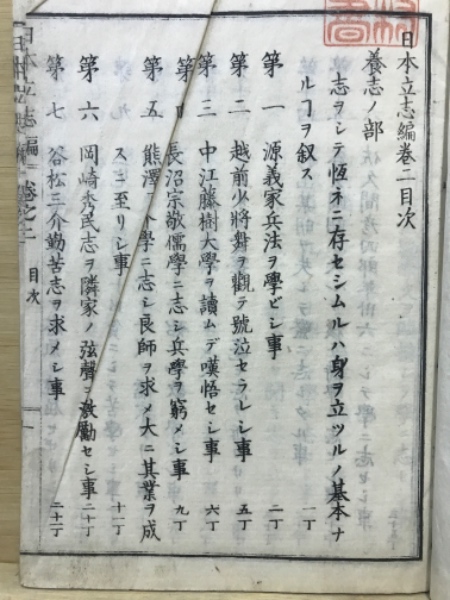 日本立志編卷二目次
養志ノ部
志ヲシテ恆ネニ存セシムルハ身ヲ立ツルノ基本ナ
ルヿヲ叙ス 一丁
第一 源義家兵法ヲ學ビシ事 二丁
第二 越前少將舞ヲ觀テ號泣セラレシ事 五丁
第三 中江藤樹大學ヲ讀ムデ嘆悟セシ事 六丁
第 長沼宗敬儒學ニ志シ兵學ヲ窮メシ事 九丁
第五 熊澤 學ニ志シ良師ヲ求メ大ニ其業ヲ成
スニ至リシ事 十一丁
第六 岡崎秀民志ヲ隣家ノ弦聲ニ激勵セシ事 二十丁
第七 谷松三介勤苦志ヲ求メシ事 二十一丁
日本立志編 卷之二 目次 一